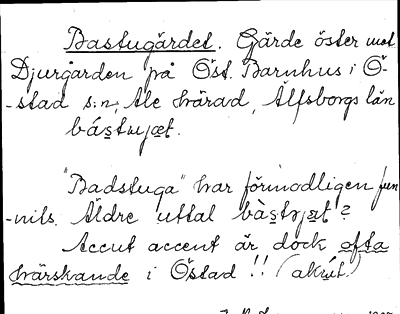 Bastugärdet. Gärde öster mot
Djurgården på Öst. Barnhus i Ö-
-stad s:n, Ale härad, Älfsborgs län
"Badstuga" har förmodligen fun-
-nits. Äldre uttal
Accut accent är dock ofta
härskande i Östad!! (akut.)